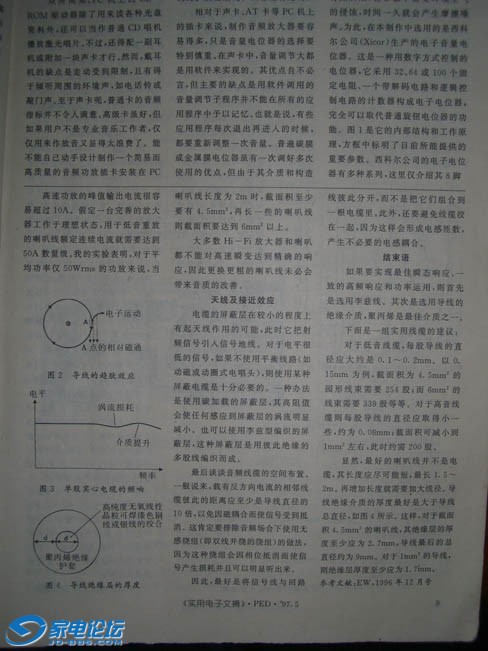 ROM驱动器除了用来读各种光盘
资料外,还可以当作普通CD唱机
播放激光唱片,不过,还得配一副耳
机或附加一块声卡才行。然而,戴耳
机的缺点是走动受到限制,且有碍
于倾听周围的环境声,如电话铃或
敲门声。至于声卡呢,普通卡的音频
指标并不令人满意,高级卡虽好,但
如果用户不是专业音乐工作者,仅
仅用来作放音又显得大浪费了。能
不能自己动手设计制作一个简易而
高质量的音频功放插卡安装在PC
相对于声卡、AT卡等PC机上
的插卡来说,制作音频放大器要容
易得多,只是音量电位器的选择要
特别慎重。在声卡中,音量调节大都
是用软件来实现的。其优点自不必
言,但主要的缺点是用软件调用的
音量调节子程序并不能在所有的应
用程序中予以记忆。也就是说,有些
应用程序每次退出再进入的时候,
都要重新调整一次音量。普通碳膜
或金属膜电位器虽有一次调好多次
使用的优点,但由于其分质和构造
的侵蚀,时间一久就会产生摩擦噪
声。为此,在本制作中选用的是西科
尔公司(Xicor)生产的电子音量电
位器。这是一种用数字方式控制的
电位器,它采用32、64或100个固
定电阻、一个带解码电路和逻辑控
制电路的计数器构成电子电位器,
完全可以取代普通旋钮电位器的功
能。图1是它的内部结构和工作原
理,方框中标明了目前所能提供的
重要参数。西科尔公司的电子电位
器有多种系列,这里仅介绍其8脚
高速功放的峰值输出电流很容
易超过10A。假定一台完善的放大
器工作于理想状态,用于低音重放
的喇叭线额定连续电流就需要达到
50A数量级,我的实验表明,对于平
均功率仅50Wrms的功放来说,当
电子运动
A
A点的相对磁通
图2 导线的趋肤效应
电平
涡流损耗
介质提升
频率
图3 单股实心电缆的频响
高纯度无氧线性
晶粒可焊漆包铜
线或银线的绞合
d d
聚丙烯绝缘
护套
图4 导线绝缘层的厚度
喇叭线长度为2m时,截面积至少
要有4.5mm²,再长一些的喇叭线
则截面积要达到6mm²以上。
大多数Hi-Fi放大器和喇叭
都不能对高速瞬变达到精确的响
应,因此更换更粗的喇叭线未必会
带来音质的改善。
天线及接近效应
电缆的屏蔽层在较小的程度上
有起天线作用的可能,此时它把射
频信号引入信号地线。对于电平很
低的信号,如果不使用平衡线路(如
动磁或动圈式电唱头),则使用某种
屏蔽电缆是十分必要的。一种办法
是使用碳加载的屏蔽层,其高阻值
会使任何感应到屏蔽层的涡流明显
减小。也可以使用李兹型编织的屏
蔽层,这种屏蔽层是用彼此绝缘的
多股线编织而成。
最后谈谈音频线缆的空间布置。
一般说来,载有反方向电流的相邻线
缆彼此的距离应至少是导线直径的
10倍,以免因磁耦合而使信号受到抵
消。这肯定要排除音频场合下使用无
感绕组(即双线并绕的绕组)的做法,
因为这种绕组会因相位抵消而使信
号产生损耗并且可以明显听出来。
因此,最好是将信号线与回路
线彼此分开,而不是把它们组合到
一根电缆里。此外,还要避免线缆绞
在一起,因为这样会形成电感抵数,
产生不必要的电感耦合。
结束语
如果要实现最佳瞬态响应、一
致的高频响应和功率运用,则首先
是选用李兹线。其次是选用导线的
绝缘介质,聚丙烯是最佳介质之一。
下面是一组实用线缆的建议:
对于低音缆,每股导线的直
径应大约是0.1~0.2mm。以0.
15mm为例,截面积为4.5mm²的
园形线束需要254股;而6mm²的
线束需要339股等等。对于高音线
缆则每股导线的直径应取得小一
些,约为0.08mm;截面积可减小到
1mm²左右,此时约需200股。
显然,最好的喇叭线并不是电
缆,其长度应尽可能短,最长1.5~
2m。再增加长度就需要加大线径。导
线绝缘介质的厚度最好是大于导线
总直径,如图4所示。这样,对于截面
积4.5mm²的喇叭线,其绝缘层的厚
度至少应为2.7mm,导线最后的总
直径约为9mm。对于1mm²的导线,
则绝缘层厚度至少应为1.7mm。
参考文献:EW,1996年12月号
《实用电子文摘》·PED·'97.5
9
家电论坛
JD-BBS.COM